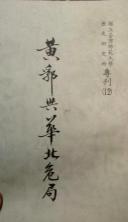 國立臺灣師範大學
歷史研究所
專刊(12)
黃郛與華北危局